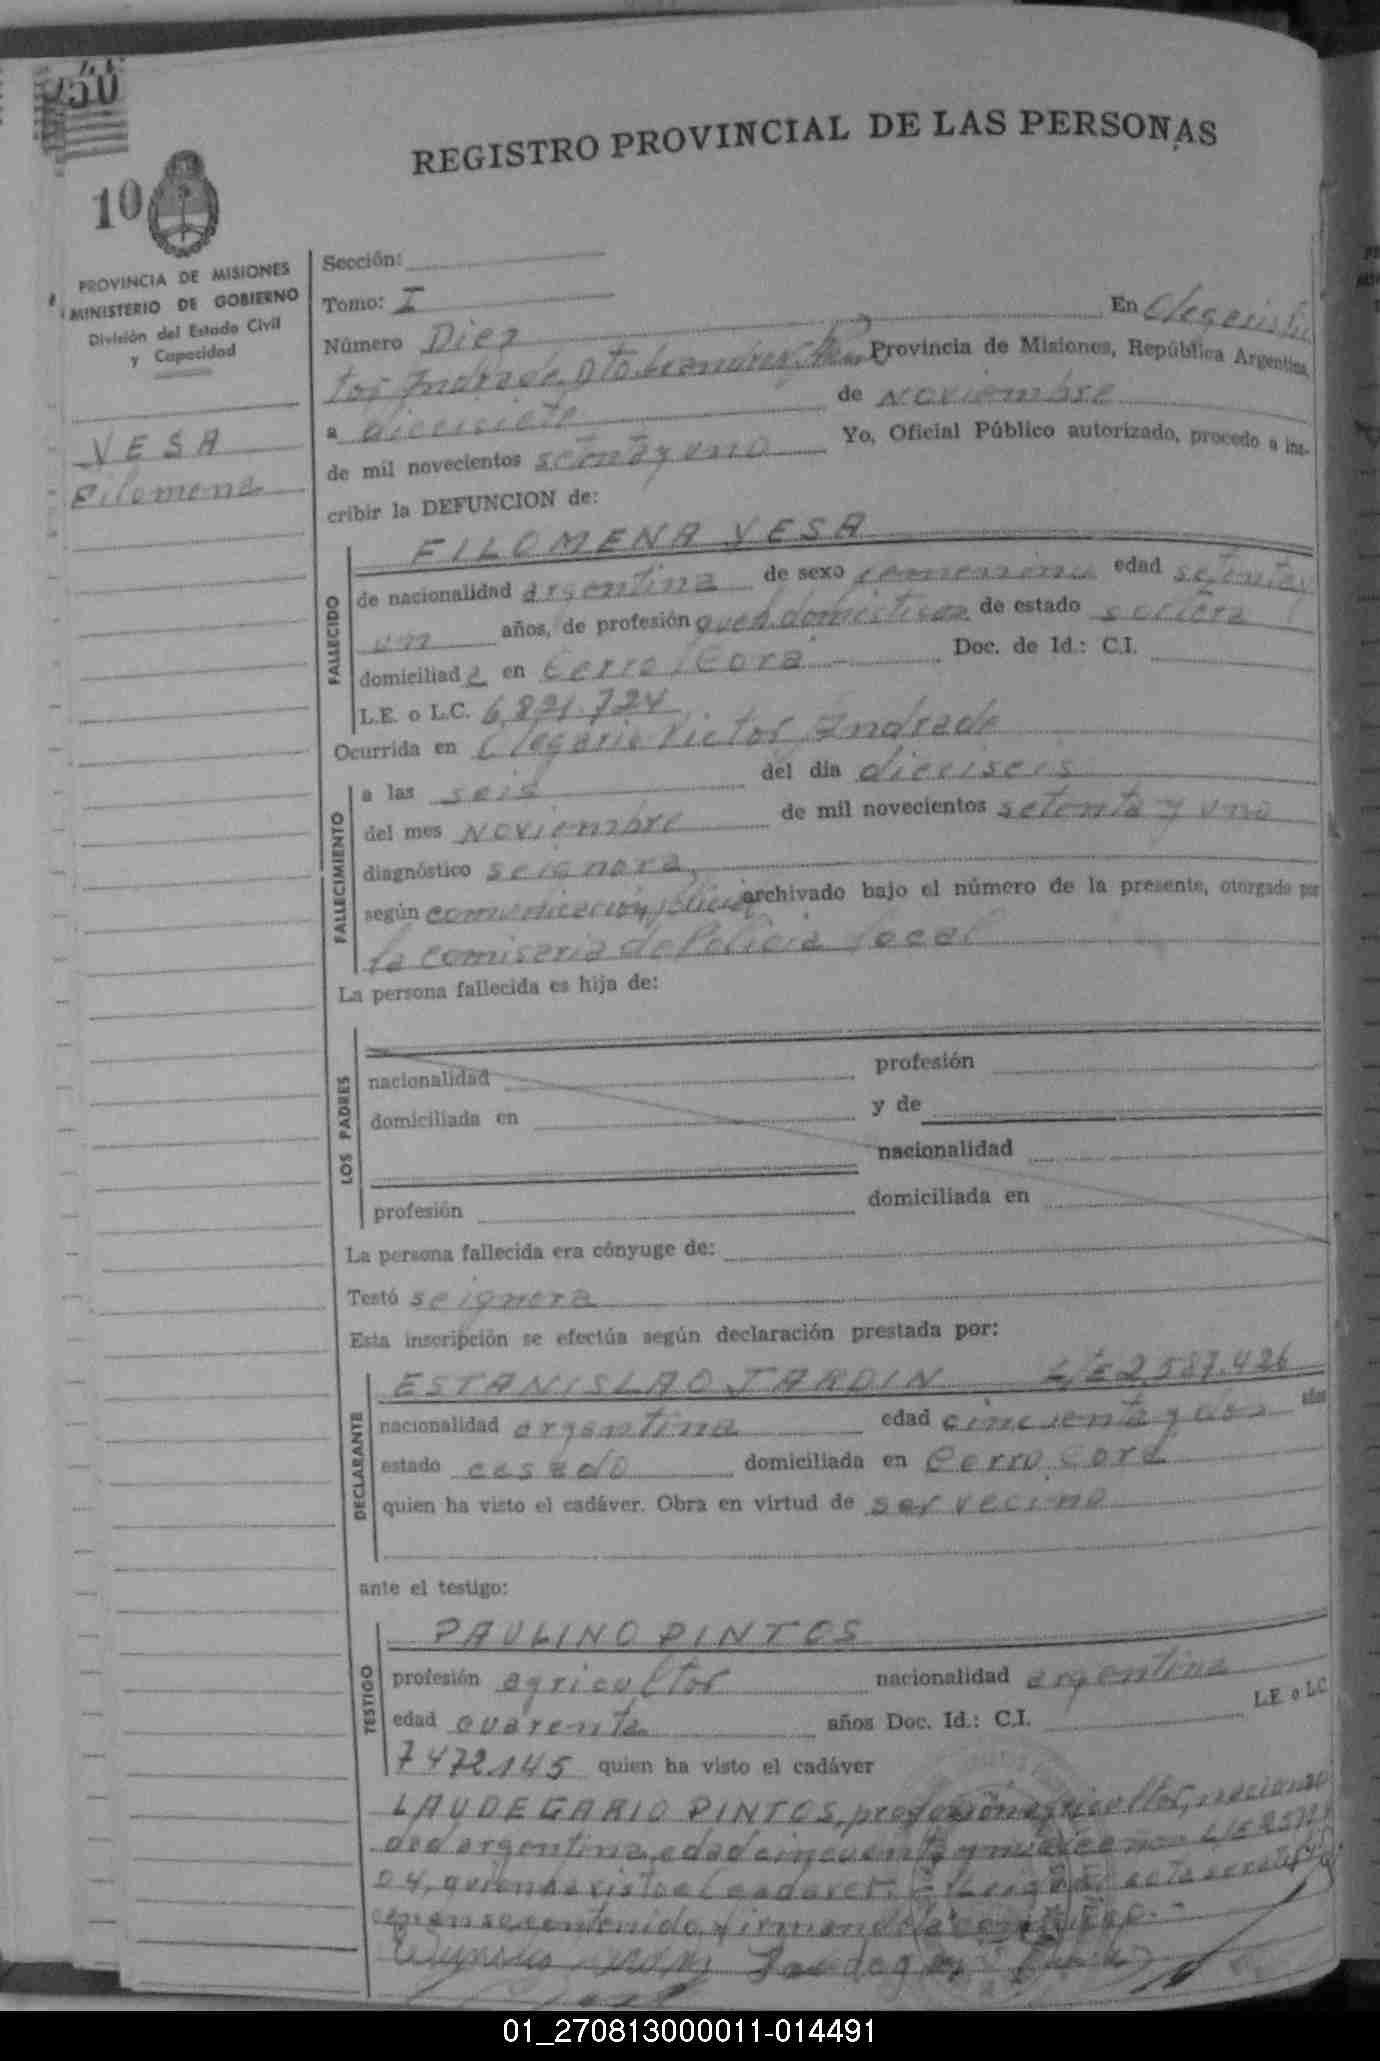 250
REGISTRO PROVINCIAL DE LAS PERSONAS
10
PROVINCIA DE MISIONES
MINISTERIO DE GOBIERNO
División del Estado Civil
y Capacidad
VESA
Filomena
Sección:
Tomo: I
Número Diez En Olegario Vic
tor Andrade, Dto. Leandro N. Provincia de Misiones, República Argentina,
a diecisiete de Noviembre
de mil novecientos setenta y uno Yo, Oficial Público autorizado, procedo a ins-
cribir la DEFUNCION de:
FILOMENA VESA
FALLECIDO
de nacionalidad argentina de sexo femenino edad setenta y
un años, de profesión queh. domésticos de estado soltera
domiciliada en Cerro Corá Doc. de Id.: C.I.
L.E. o L.C. 6.821.724
Ocurrida en Olegario Victor Andrade
FALLECIMIENTO
a las seis del día dieciseis
del mes Noviembre de mil novecientos setenta y uno
diagnóstico se ignora,
según comunicación policial archivado bajo el número de la presente, otorgado por
la comiseria de Policia local
La persona fallecida es hija de:
LOS PADRES
nacionalidad profesión
domiciliada en y de
nacionalidad
profesión domiciliada en
La persona fallecida era cónyuge de:
Testó se ignora
Esta inscripción se efectúa según declaración prestada por:
ESTANISLAO JARDIN L/E 2.587.426
DECLARANTE
nacionalidad argentina edad cincuenta y dos años
estado casado domiciliada en Cerro Corá
quien ha visto el cadáver. Obra en virtud de ser vecino
ante el testigo:
PAULINO PINTOS
TESTIGO
profesión agricultor nacionalidad argentina
edad cuarenta años Doc. Id.: C.I. L.E. o L.C.
7472.145 quien ha visto el cadáver
LAUDEGARIO PINTOS, profesión agricultor, naciona
dad argentina, edad cincuenta y nueve años L/E
04, quien ha visto el cadaver. Leída el acta se ratifi
can en su contenido, firmando
01_270813000011-014491